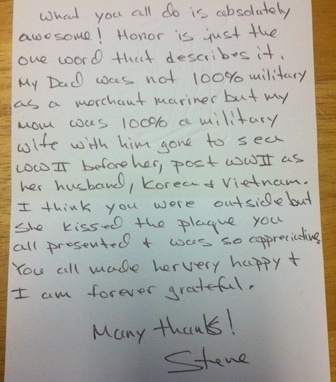 What you all do is absolutely
awesome! Honor is just the
one word that describes it.
My Dad was not 100% military
as a merchant mariner but my
mom was 100% a military
wife with him gone to sea
WWII before her, post WWII as
her husband, Korea & Vietnam.
I think you were outside but
she kissed the plaque you
all presented & was so appreriating
You all made her very happy &
I am forever grateful.
Many thanks!
Steve